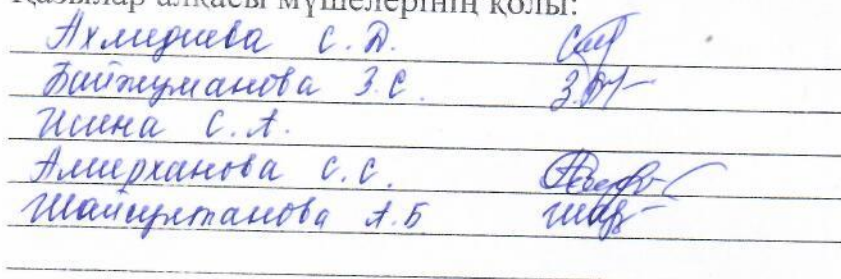 Қазылар алқасы мүшелерінің қолы:
Ахмидиева С.Д.
Байжуманова З.С.
Исина С.А.
Амерханова С.С.
Шайсултанова А.Б